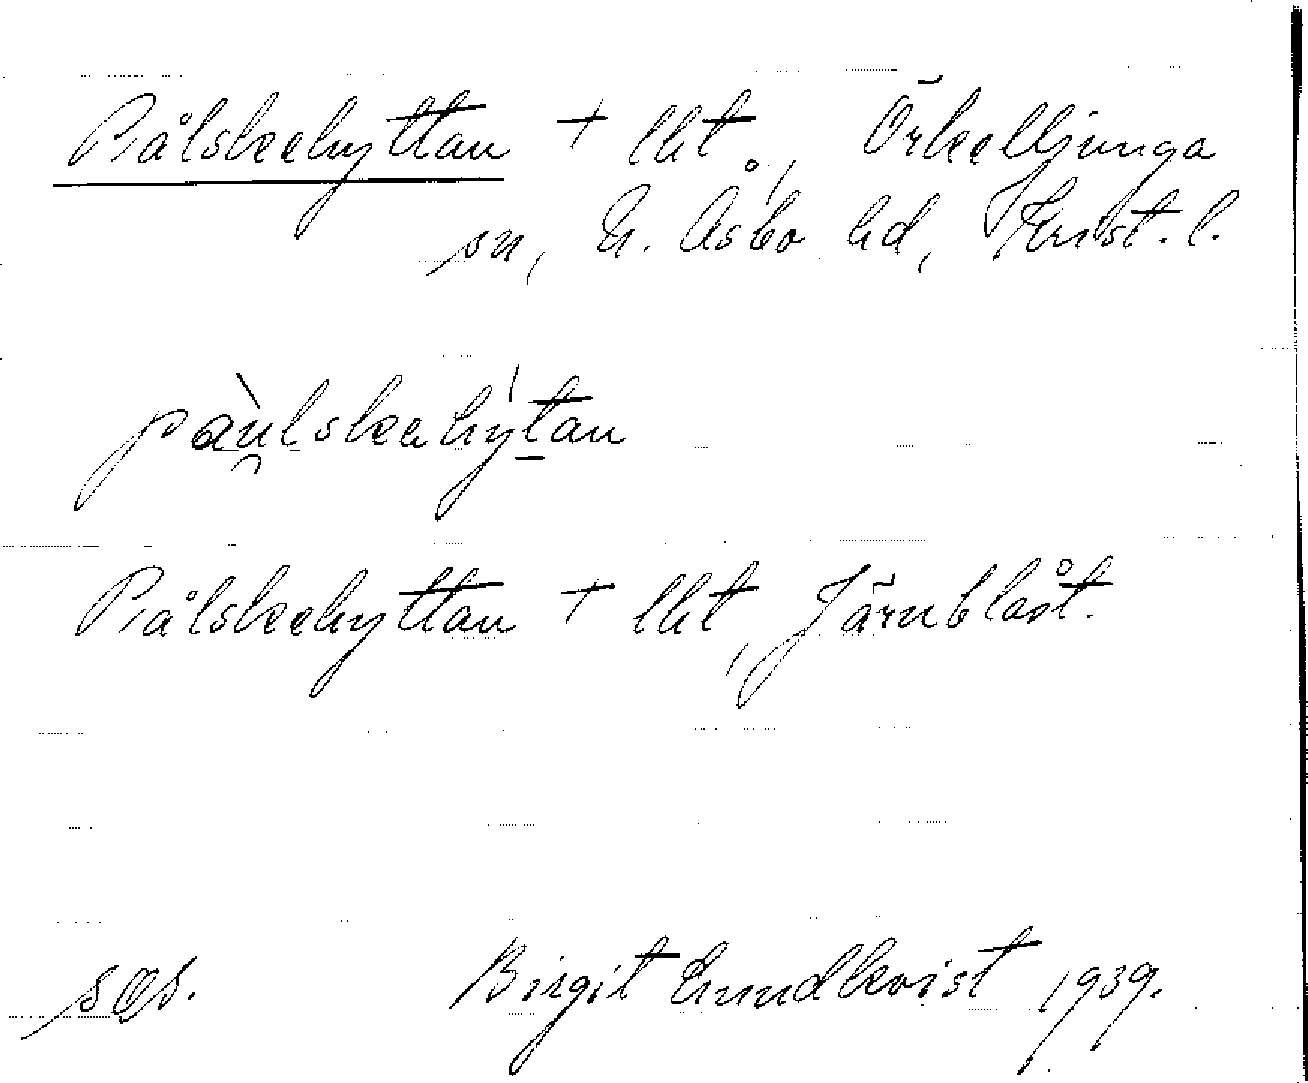 Pålskehyttan + lht, Örkelljunga
sn, N. Åsbo hd, Krist. l.
pàu̯lskahýtan
Pålskehyttan + lht, Järnblåst.
sgs. Birgit Lundkvist 1939.